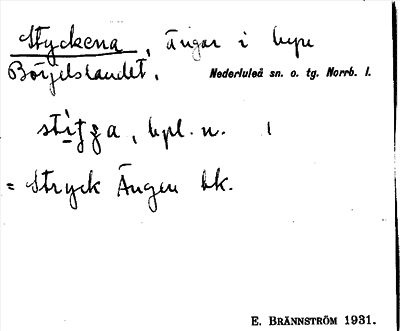 Styckena, ängar i byn
Börjelslandet. Nederluleå sn. o. tg. Norrb. l.
, bpl. n. 1
= Stryck Ängen lk.
E. BRÄNNSTRÖM 1931.